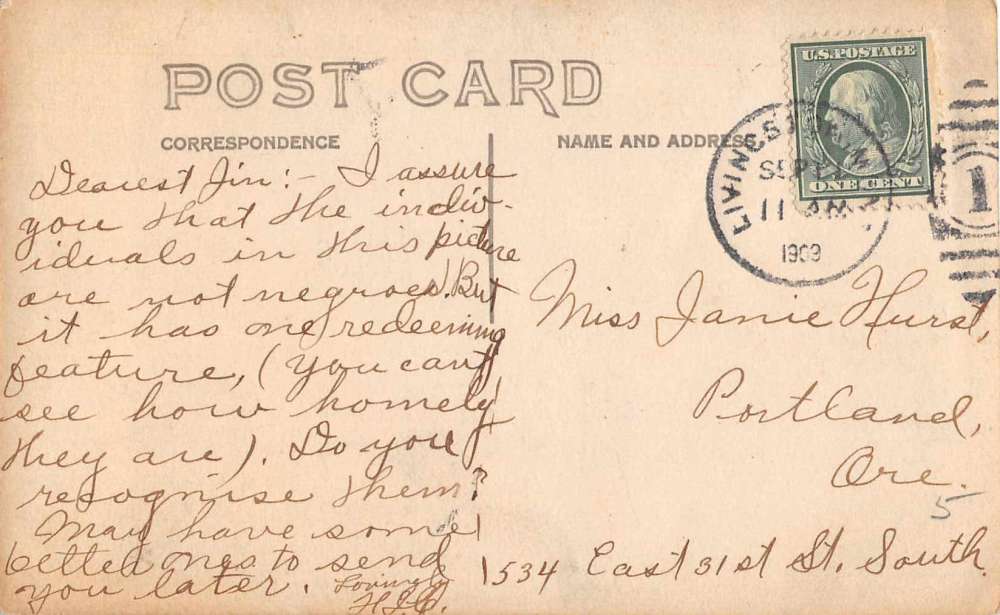 POST CARD
CORRESPONDENCE
NAME AND ADDRESS
U.S. POSTAGE
ONE CENT
LIVINGSTON
SEP
11 AM
1909
1
Dearest Jin:- I assure
you that the indiv-
iduals in this picture
are not negroes. But
it has one redeeming
feature, (you can't
see how homely
they are). Do you
recognise them?
May have some
better ones to send
you later. Lovingly
H.J.C.
Miss Janie Hurst,
Portland,
Ore.
5
1534 East 31st St. South